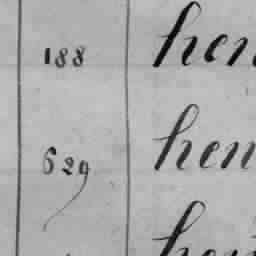 188 hen
629 hen